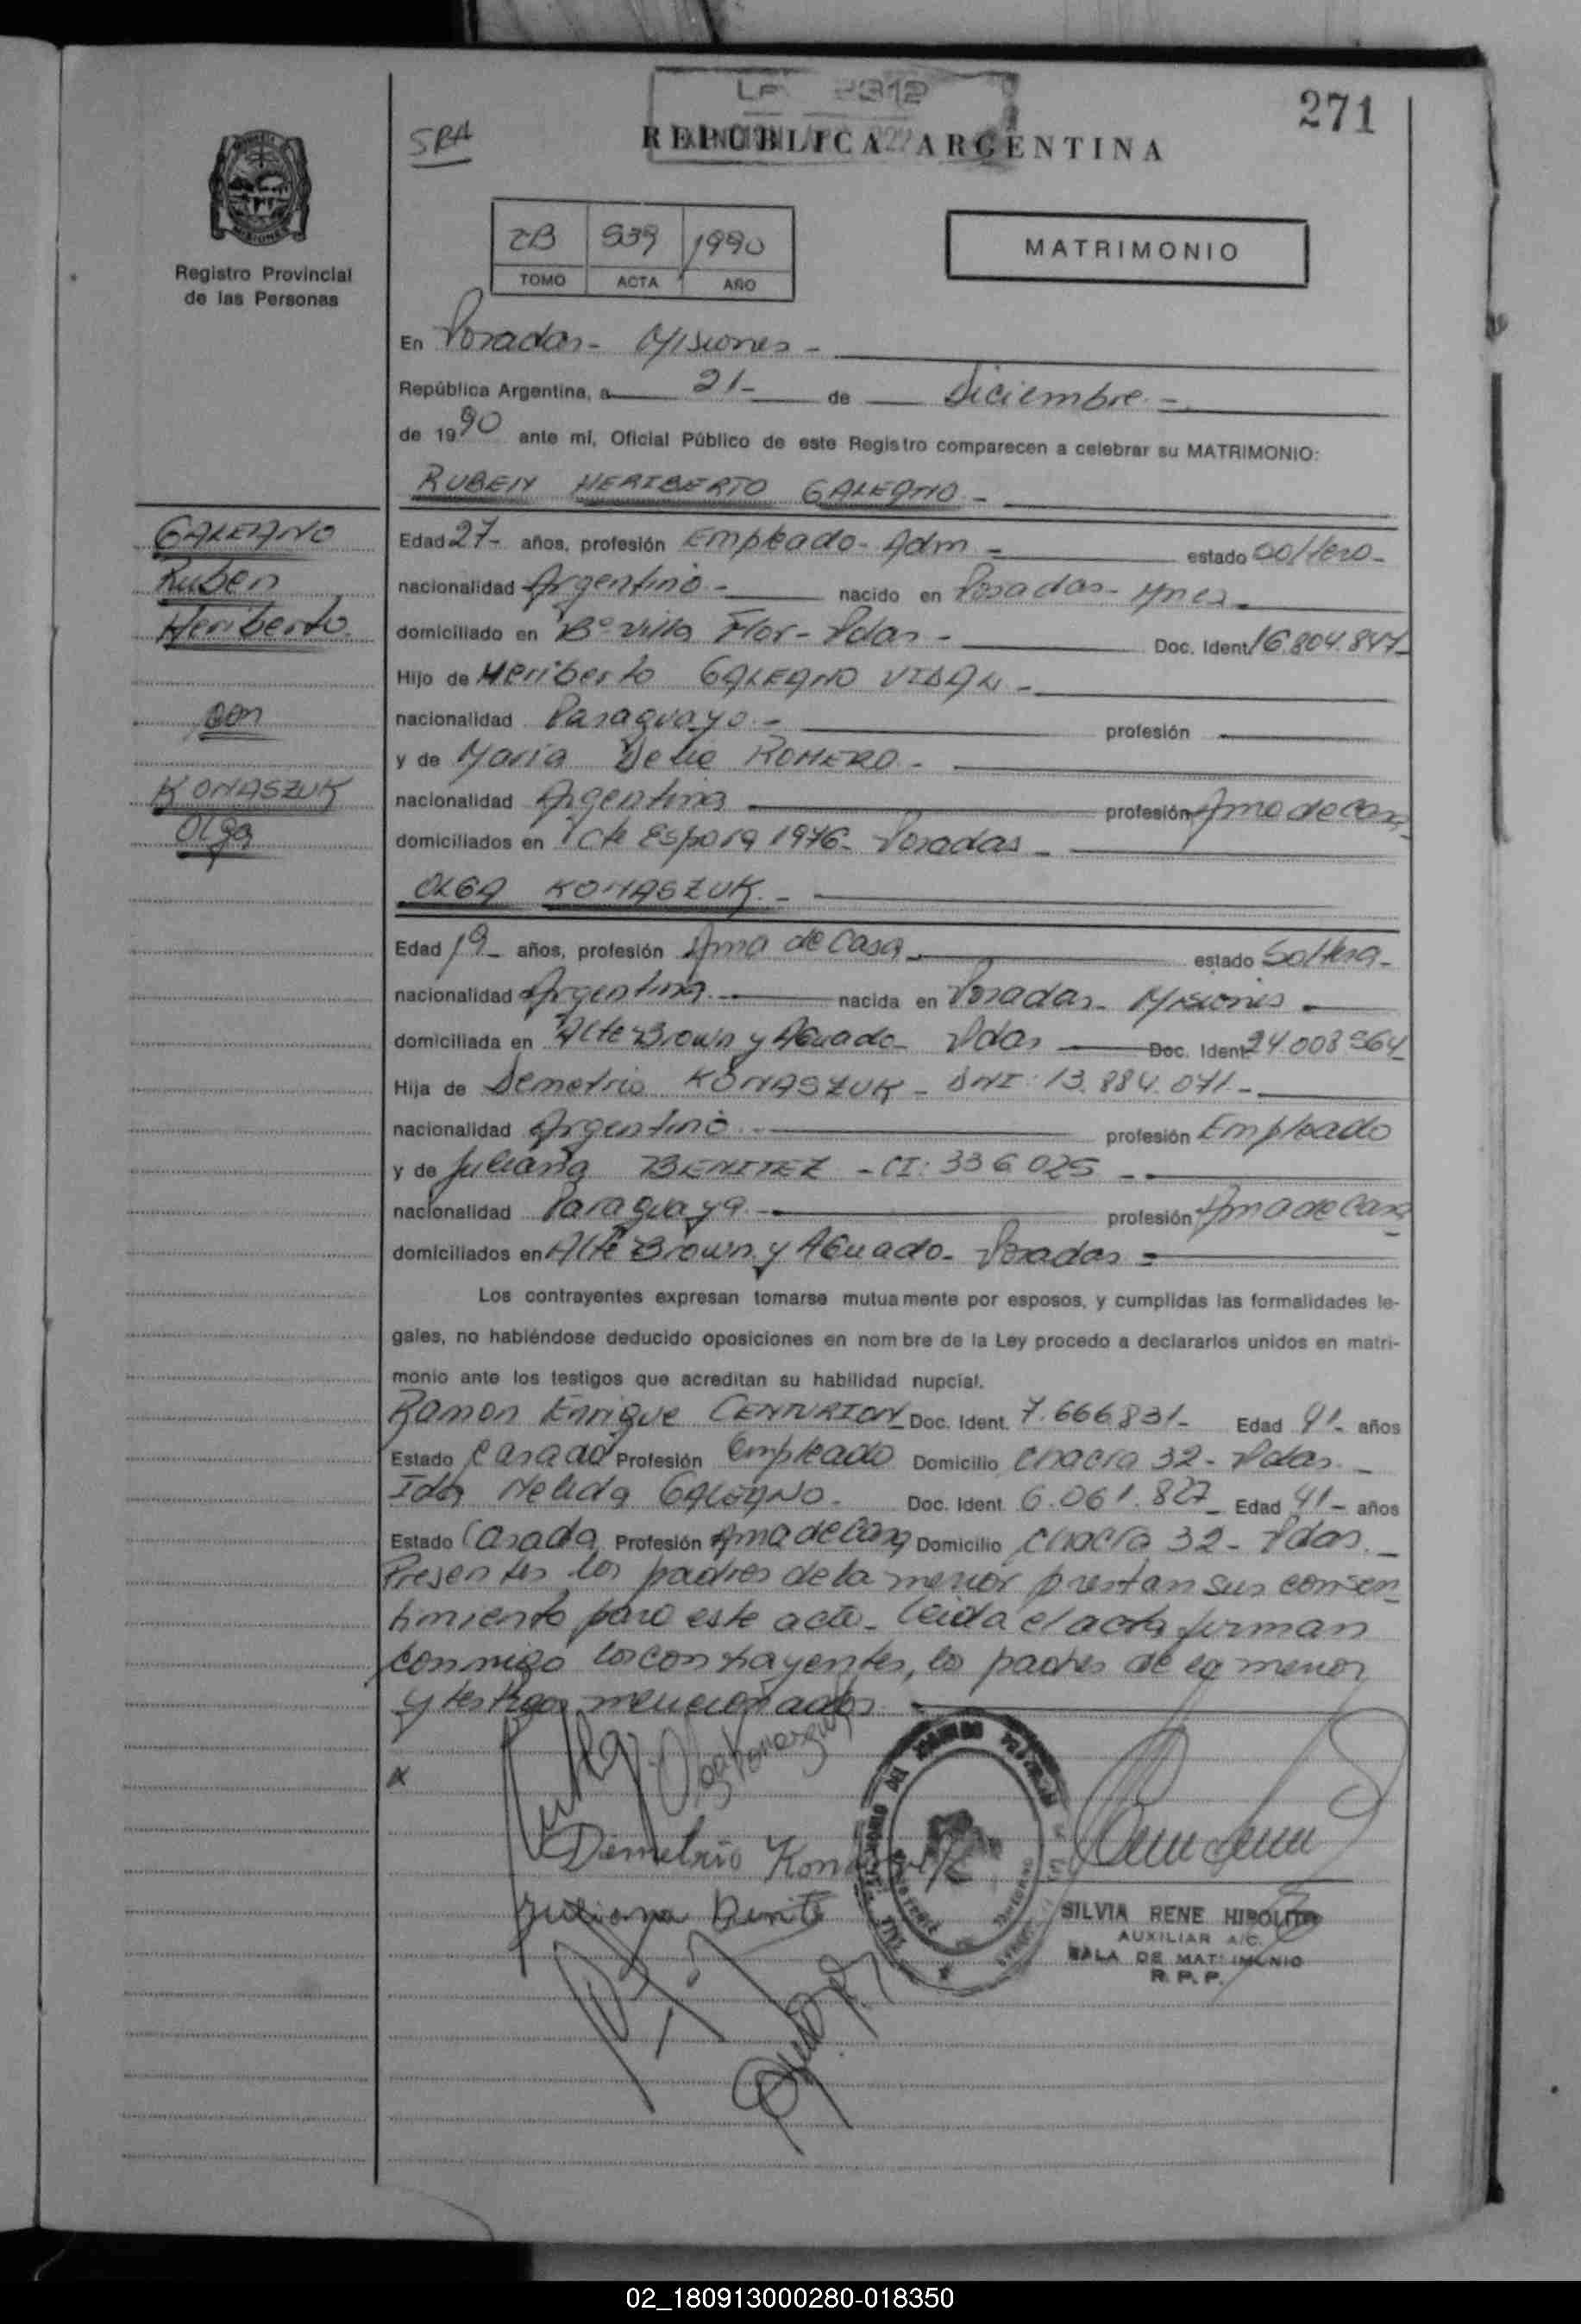 271
SRA
REPÚBLICA ARGENTINA
MISIONES
Registro Provincial
de las Personas
2B 939 1990
TOMO ACTA AÑO
MATRIMONIO
En Posadas - Misiones -
República Argentina, a 21 - de Diciembre -
de 1990 ante mí, Oficial Público de este Registro comparecen a celebrar su MATRIMONIO:
RUBEN HERIBERTO GALEANO -
GALEANO
Ruben
Heriberto
con
KONASZUK
Olga
Edad 27- años, profesión Empleado - Adm - estado soltero -
nacionalidad Argentino - nacido en Posadas - Mnes -
domiciliado en Bº Villa Flor - Pdas - Doc. Ident. 16.804.847 -
Hijo de Heriberto GALEANO VIDAL -
nacionalidad Paraguayo - profesión
y de María Delia ROMERO -
nacionalidad Argentina profesión Ama de casa -
domiciliados en Tte Espora 1976 - Posadas -
OLGA KONASZUK -
Edad 19 - años, profesión Ama de Casa - estado Soltera -
nacionalidad Argentina - nacida en Posadas - Misiones -
domiciliada en Alte Brown y Aguado - Pdas Doc. Ident. 24.008.964 -
Hija de Demetrio KONASZUK - DNI: 13.884.071 -
nacionalidad Argentino - profesión Empleado
y de Juliana BENITEZ - CI: 336025 -
nacionalidad Paraguaya - profesión Ama de Casa -
domiciliados en Alte Brown y Aguado - Posadas -
Los contrayentes expresan tomarse mutuamente por esposos, y cumplidas las formalidades le-
gales, no habiéndose deducido oposiciones en nombre de la Ley procedo a declararlos unidos en matri-
monio ante los testigos que acreditan su habilidad nupcial.
Ramon Enrique CENTURION - Doc. Ident. 7.666.831 - Edad 41 - años
Estado Casado Profesión Empleado Domicilio Chacra 32 - Pdas. -
Ida Nelida GALEANO - Doc. Ident. 6.061.827 - Edad 41 - años
Estado Casada Profesión Ama de Casa Domicilio Chacra 32 - Pdas. -
Presentes los padres de la menor prestan sus consen-
timiento para este acto - leida el acta firman
conmigo los contrayentes, los padres de la menor
y testigos mencionados -
Olga Konaszuk
x
Demetrio
Juliana
SILVIA RENE HIPOLITO
AUXILIAR A/C.
SALA DE MATRIMONIO
R. P. P.
02_180913000280-018350